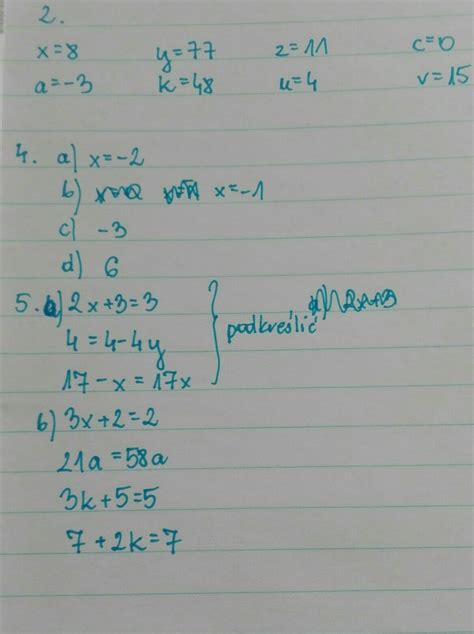 2.
x=8 y=77 z=11 c=0
a=-3 k=48 u=4 v=15
4. a) x=-2
b) x=-1
c) -3
d) 6
5. a) 2x+3=3
4=4-4y
17-x=17x
podkreślić
b) 3x+2=2
21a=58a
3k+5=5
7+2k=7